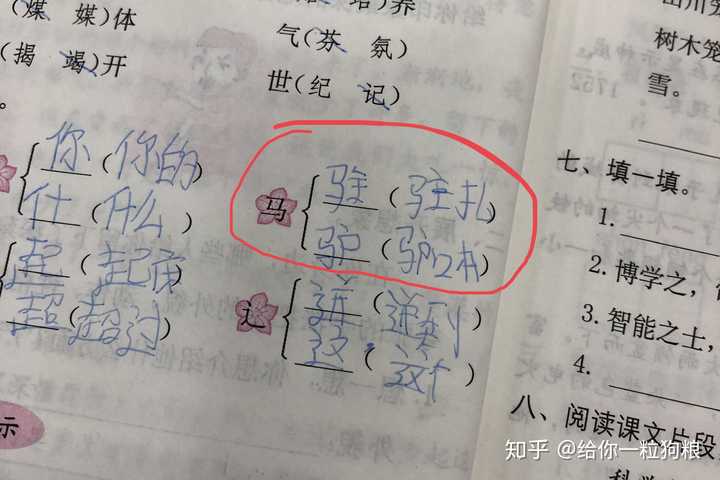 （煤 媒）体
气（芬 氛）
（揭 竭）开
世（纪 记）
。
你（你的）
什（什么）
起（起床）
超（超过）
马
驻（驻扎）
驴
辶
送（送到）
这（这个）
示
树木笼
雪。
七、填一填。
1.
2. 博学之，
3. 智能之士，
4.
八、阅读课文片段
知乎 @给你一粒狗粮